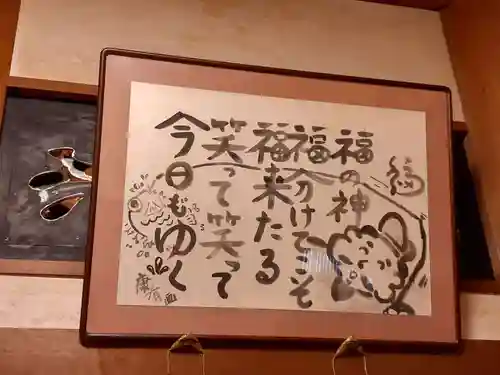 福の神
福分けてこそ
福来たる
笑って笑って
今日もゆく